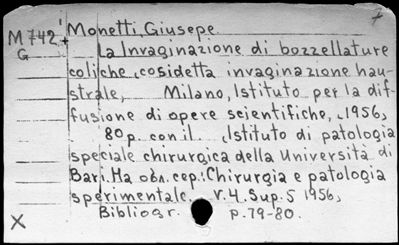 M 742 Monetti, Giusepe.
G La Invaginazione di bozzellature
coliche, cosidetta invaginazione hau-
strale, Milano, Istituto per la dif-
fusione di opere scientifiche, 1956,
80p. con il. (Istituto di patologia
speciale chirurgica della Università di
Bari. На обл. сер.: Chirurgia e patologia
sperimentale. v.4. Sup. 5 1956,
Bibliogr. p. 79-80.
X